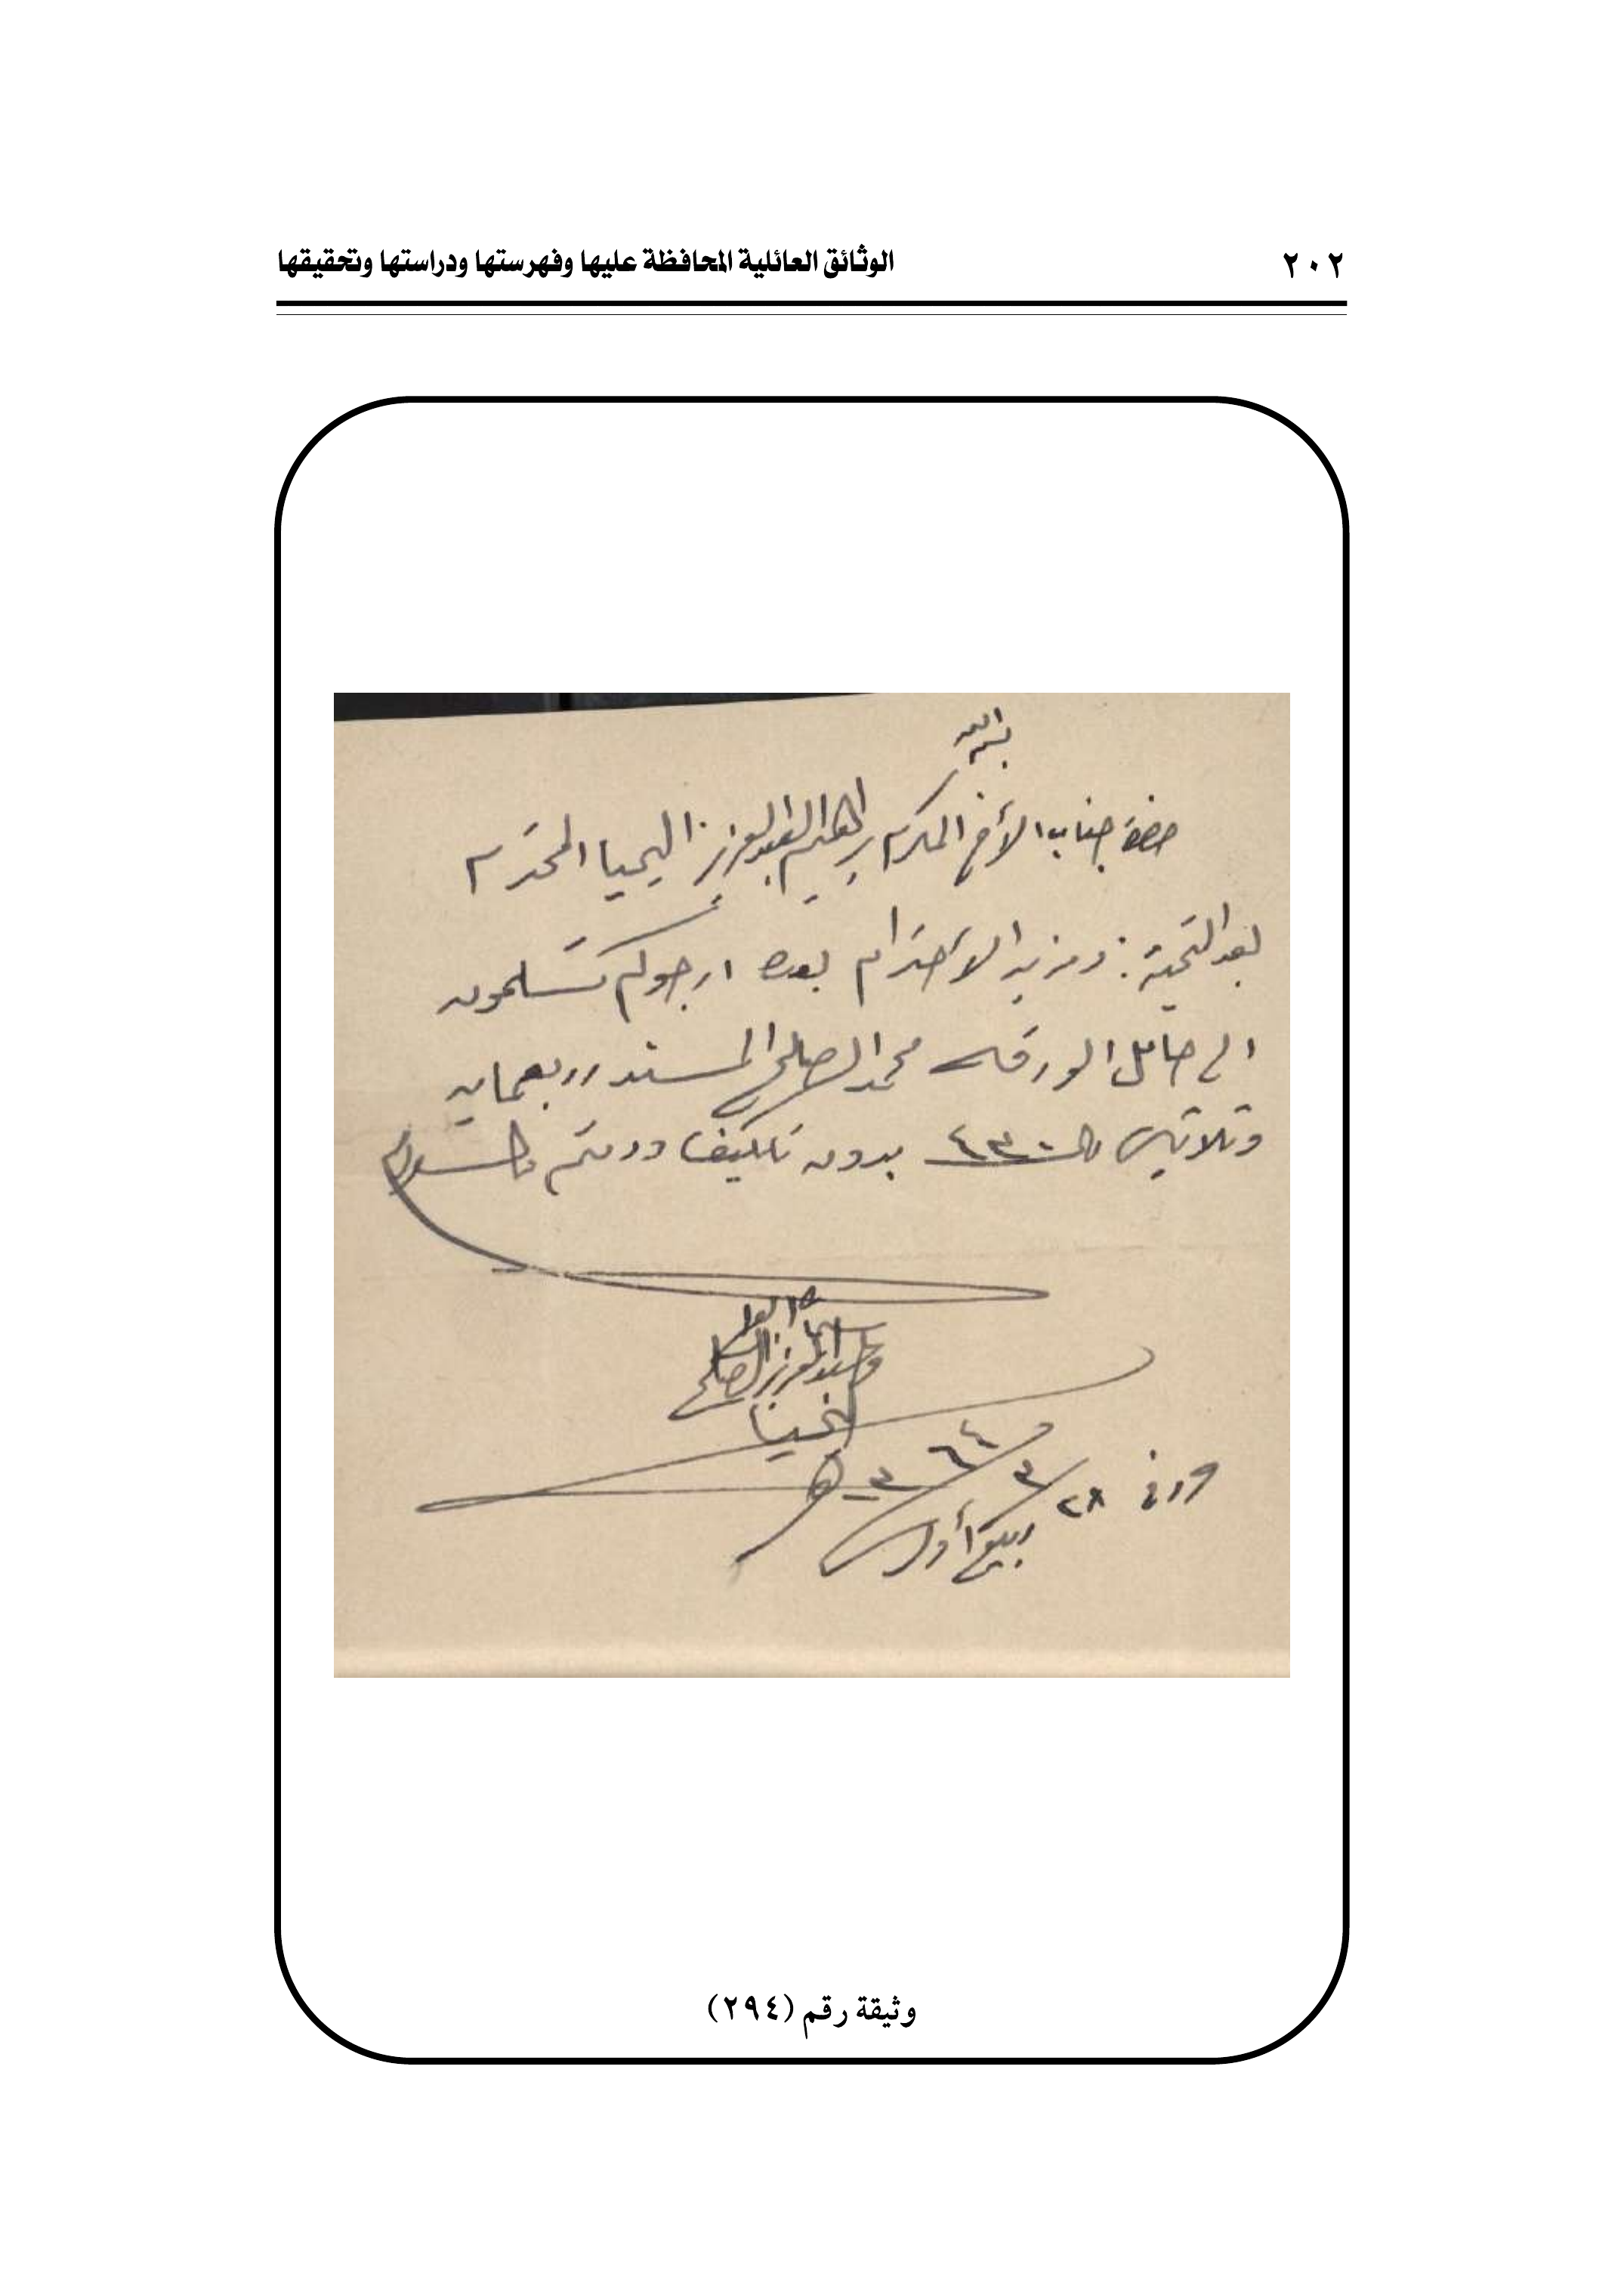 ٢٠٢
الوثائق العائلية المحافظة عليها وفهرستها ودراستها وتحقيقها
بسم الله
حضرة جناب الأخ المكرم ابراهيم العبدالعزيز اليحيا المحترم
بعد التحية: ومزيد الاحترام بعده ارجوكم تسلمون
الى حامل الورقه محمد الصالح السند اربعمايه
وثلاثين ريال ٤٣٠ بدون تكليف ودمتم والسلام
عبدالعزيز الصالح
اليحيا
حرر في ٢٨ / ٣ / ٦٤ ١٣ هـ
ربيع أول
وثيقة رقم (٢٩٤)